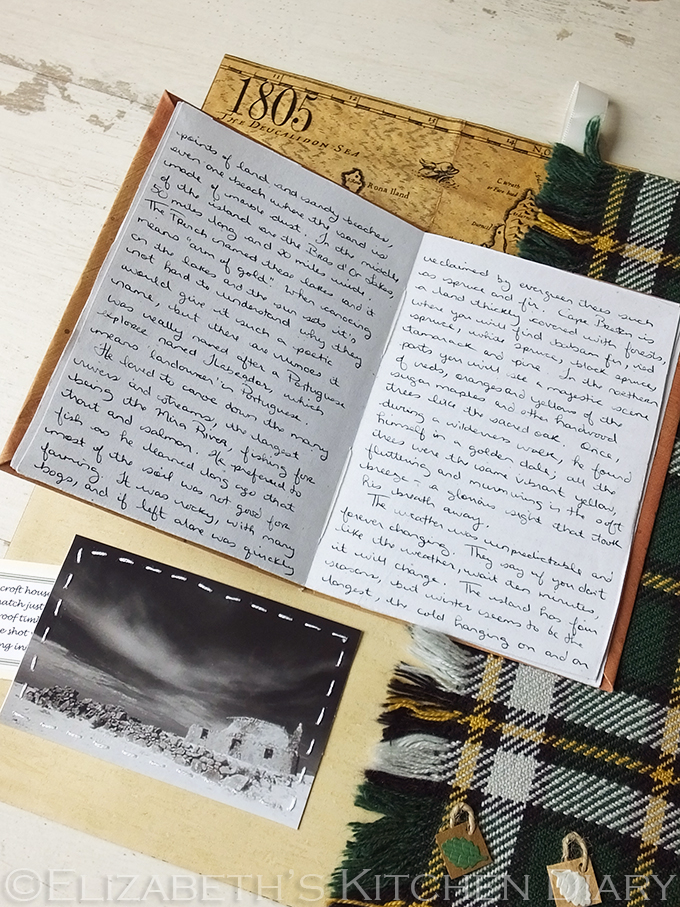 1805
THE DEUCALIDON SEA
Rona Iland
points of land and sandy beaches,
even one beach where the sand is
made of marble dust. In the middle
of the island are the Bras d'Or Lakes,
50 miles long and 20 miles wide.
The French named these lakes and it
means "arm of gold". When canoeing
on the lakes and the sun sets it's
not hard to understand why they
would give it such a poetic
name, but there are rumors it
was really named after a Portuguese
explorer named
means 'landowner' in Portuguese.
He loved to canoe down the many
rivers and streams, the largest
being the Mira River, fishing for
trout and salmon. He preferred to
fish as he learned long ago that
most of the soil was not good for
farming. It was rocky, with many
bogs, and if left alone was quickly
reclaimed by evergreen trees such
as spruce and fir. Cape Breton is
a land thickly covered with forests,
where you will find balsam fir, red
spruce, white spruce, black spruce,
tamarack and pine. In the northern
parts, you will see a majestic scene
of reds, oranges and yellows of the
sugar maples and other hardwood
trees like the sacred oak. Once,
during a wilderness walk, he found
himself in a golden dale; all the
trees were the same vibrant yellow,
fluttering and murmuring in the soft
breeze - a glorious sight that took
his breath away.
The weather was unpredictable and
forever changing. They say if you don't
like the weather, wait ten minutes,
it will change. The island has four
seasons, but winter seems to be the
longest, the cold hanging on and on
croft house
hatch just
roof
e shot
ng in
©ELIZABETH'S KITCHEN DIARY